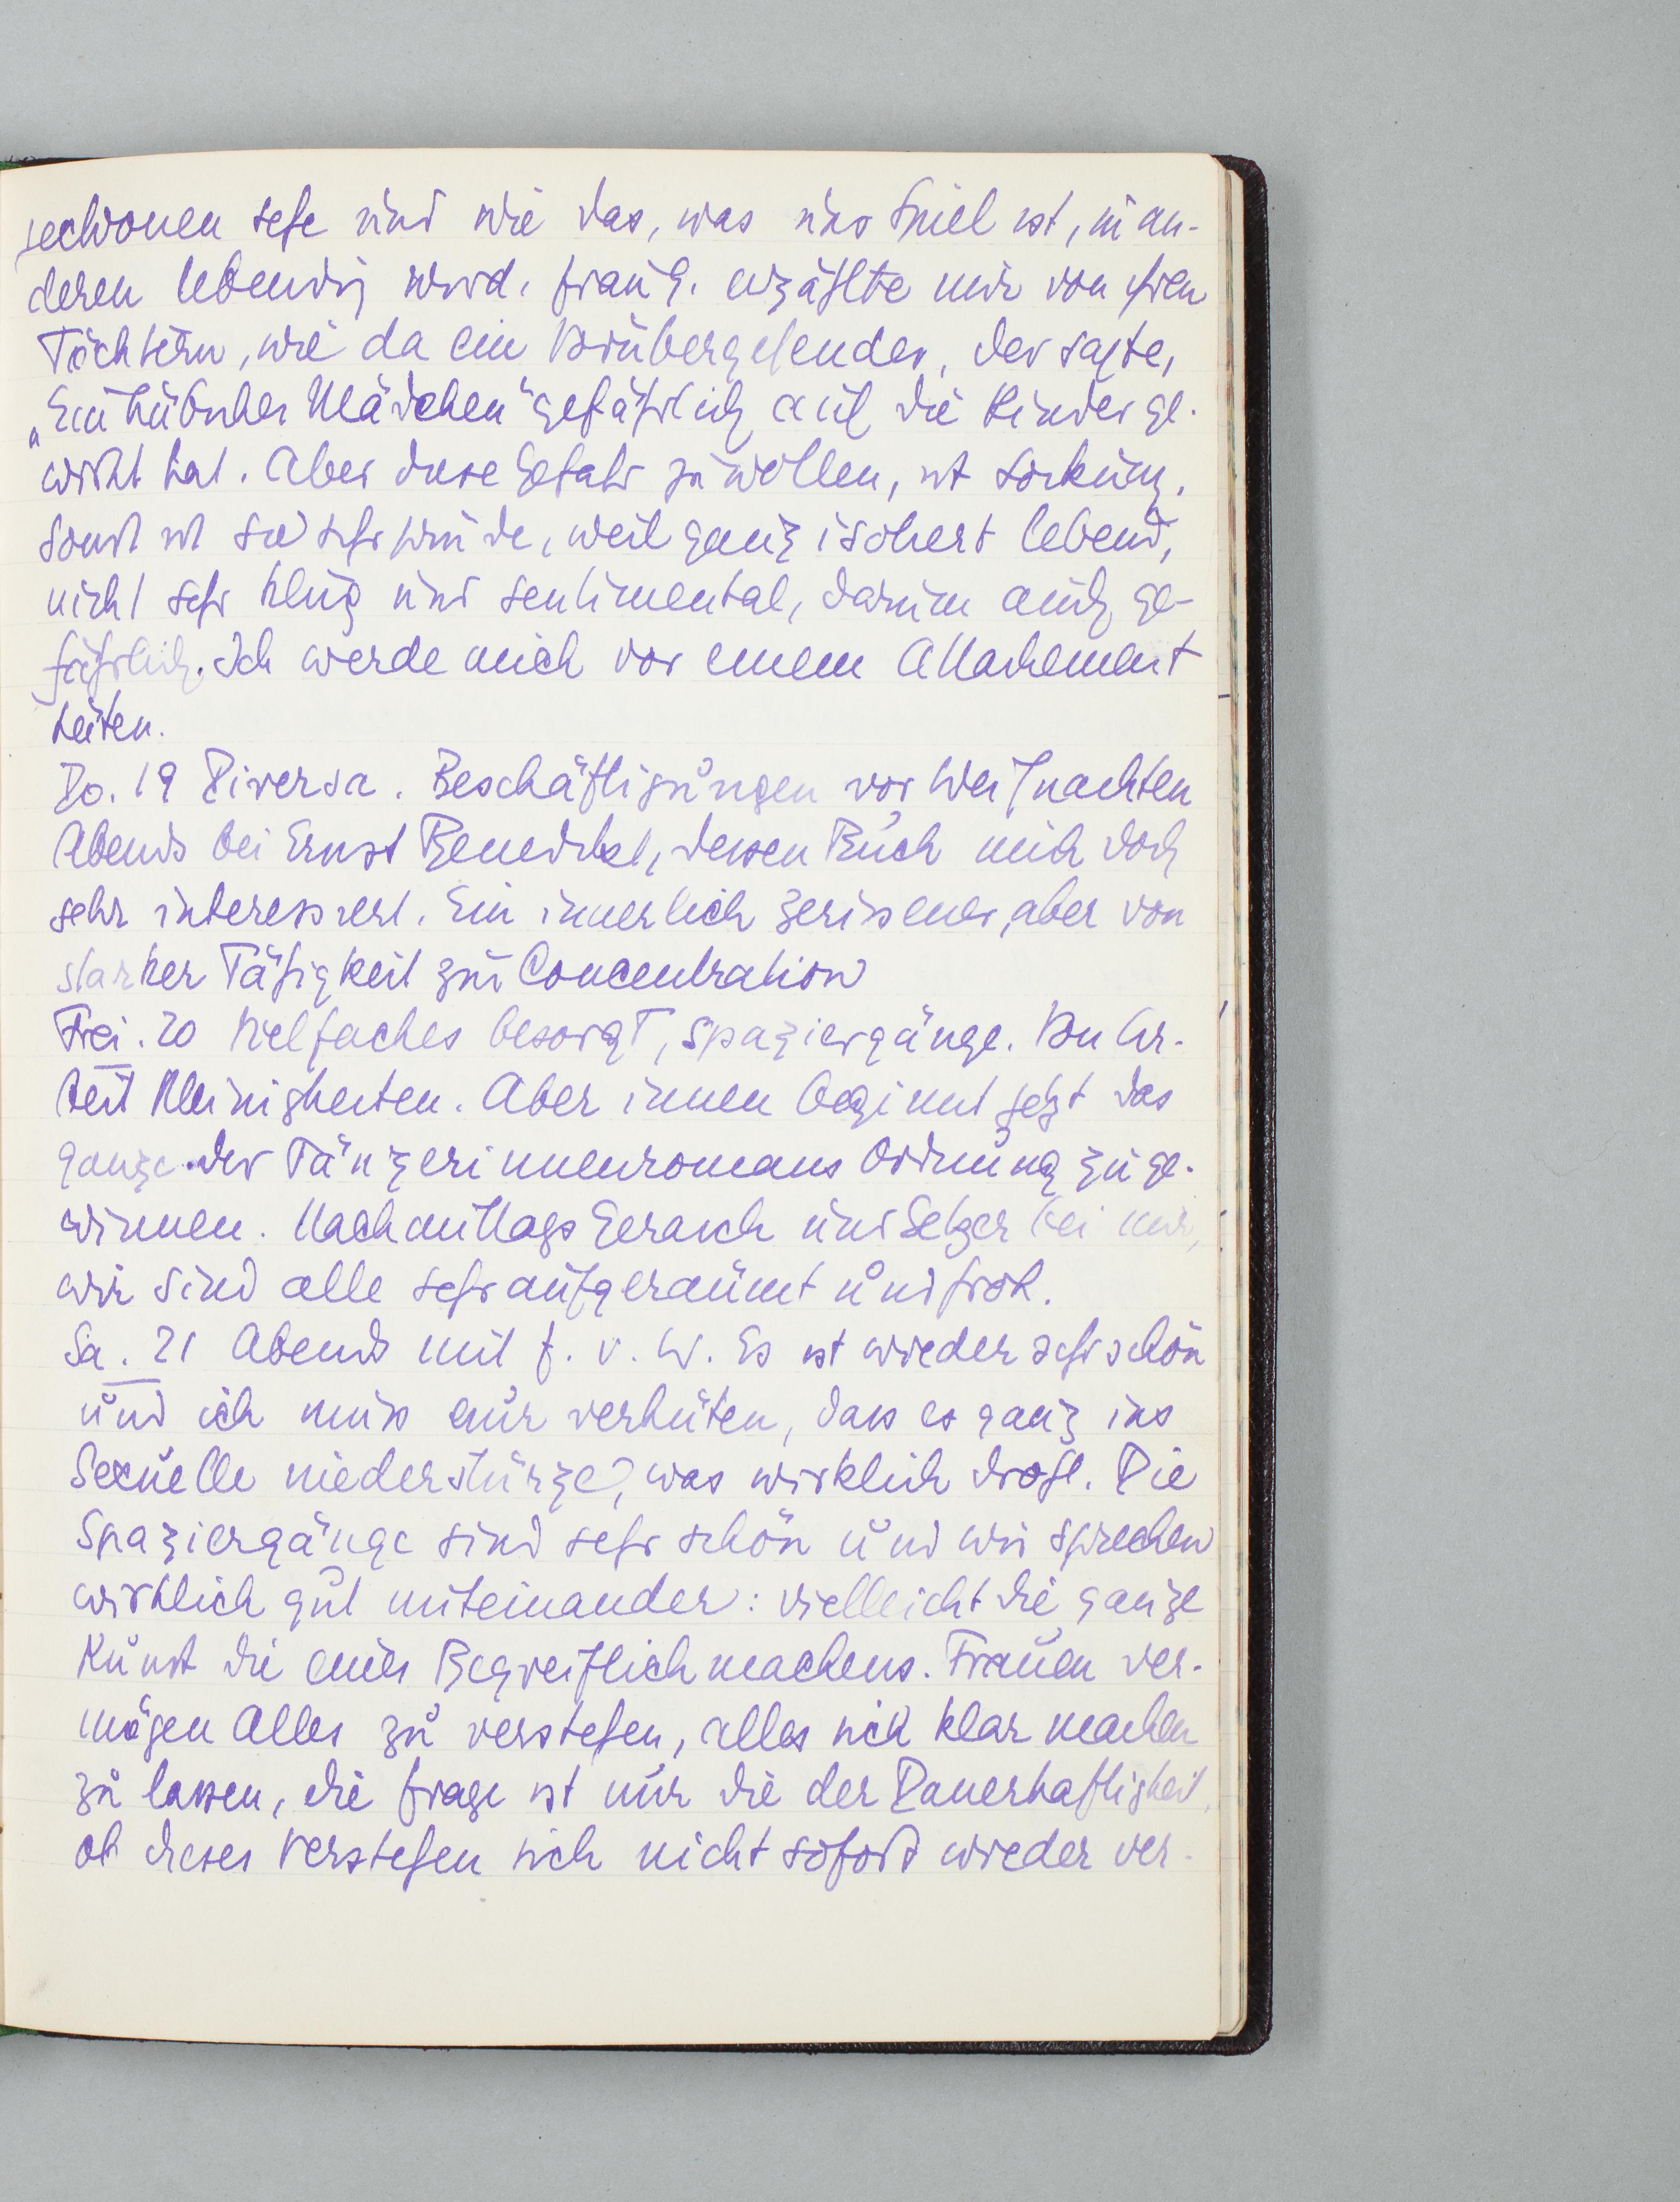 sehe und wie das, was uns Spiel ist, in an-
deren lebendig wird. Frau G. erzählte mir von ihren
Töchtern, wie da ein Vorübergehender, der sagte,
„Ein hübsches Mädchen" gefährlich auf die Kinder ge-
wirkt hat. Aber diese Gefahr zu wollen, ist
Sonst ist sie sehr müde, weil ganz isoliert lebend,
nicht sehr klug und sentimental, darum auch ge-
fährlich. Ich werde mich vor einem Attachement
hüten.
Do. 19 Diversa. Beschäftigungen vor Weihnachten
Abends bei Ernst Benedikt, dessen Buch mich doch
sehr interessiert. Ein innerlich zerissener, aber von
starker Fähigkeit zur Concentration
Frei. 20 Vielfaches besorgt, Spaziergänge. Von Ar-
beit Kleinigkeiten. Aber innen beginnt jetzt das
ganze des Tänzerinnenromans Ordnung zu ge-
winnen. Nachmittags Gerasch und Selzer bei mir,
wir sind alle sehr aufgeräumt und froh.
Sa. 21 Abends mit F. v. W. Es ist wieder sehr schön
und ich muss nur verhüten, dass es ganz ins
Sexuelle niederstürze, was wirklich droht. Die
Spaziergänge sind sehr schön und wir sprechen
wirklich gut miteinander: vielleicht die ganze
Kunst die eines Begreiflichmachens. Frauen ver-
mögen Alles zu verstehen, alles sich klar machen
zu lassen, die Frage ist nur die der Dauerhaftigkeit,
ob dieses Verstehen sich nicht sofort wieder ver-